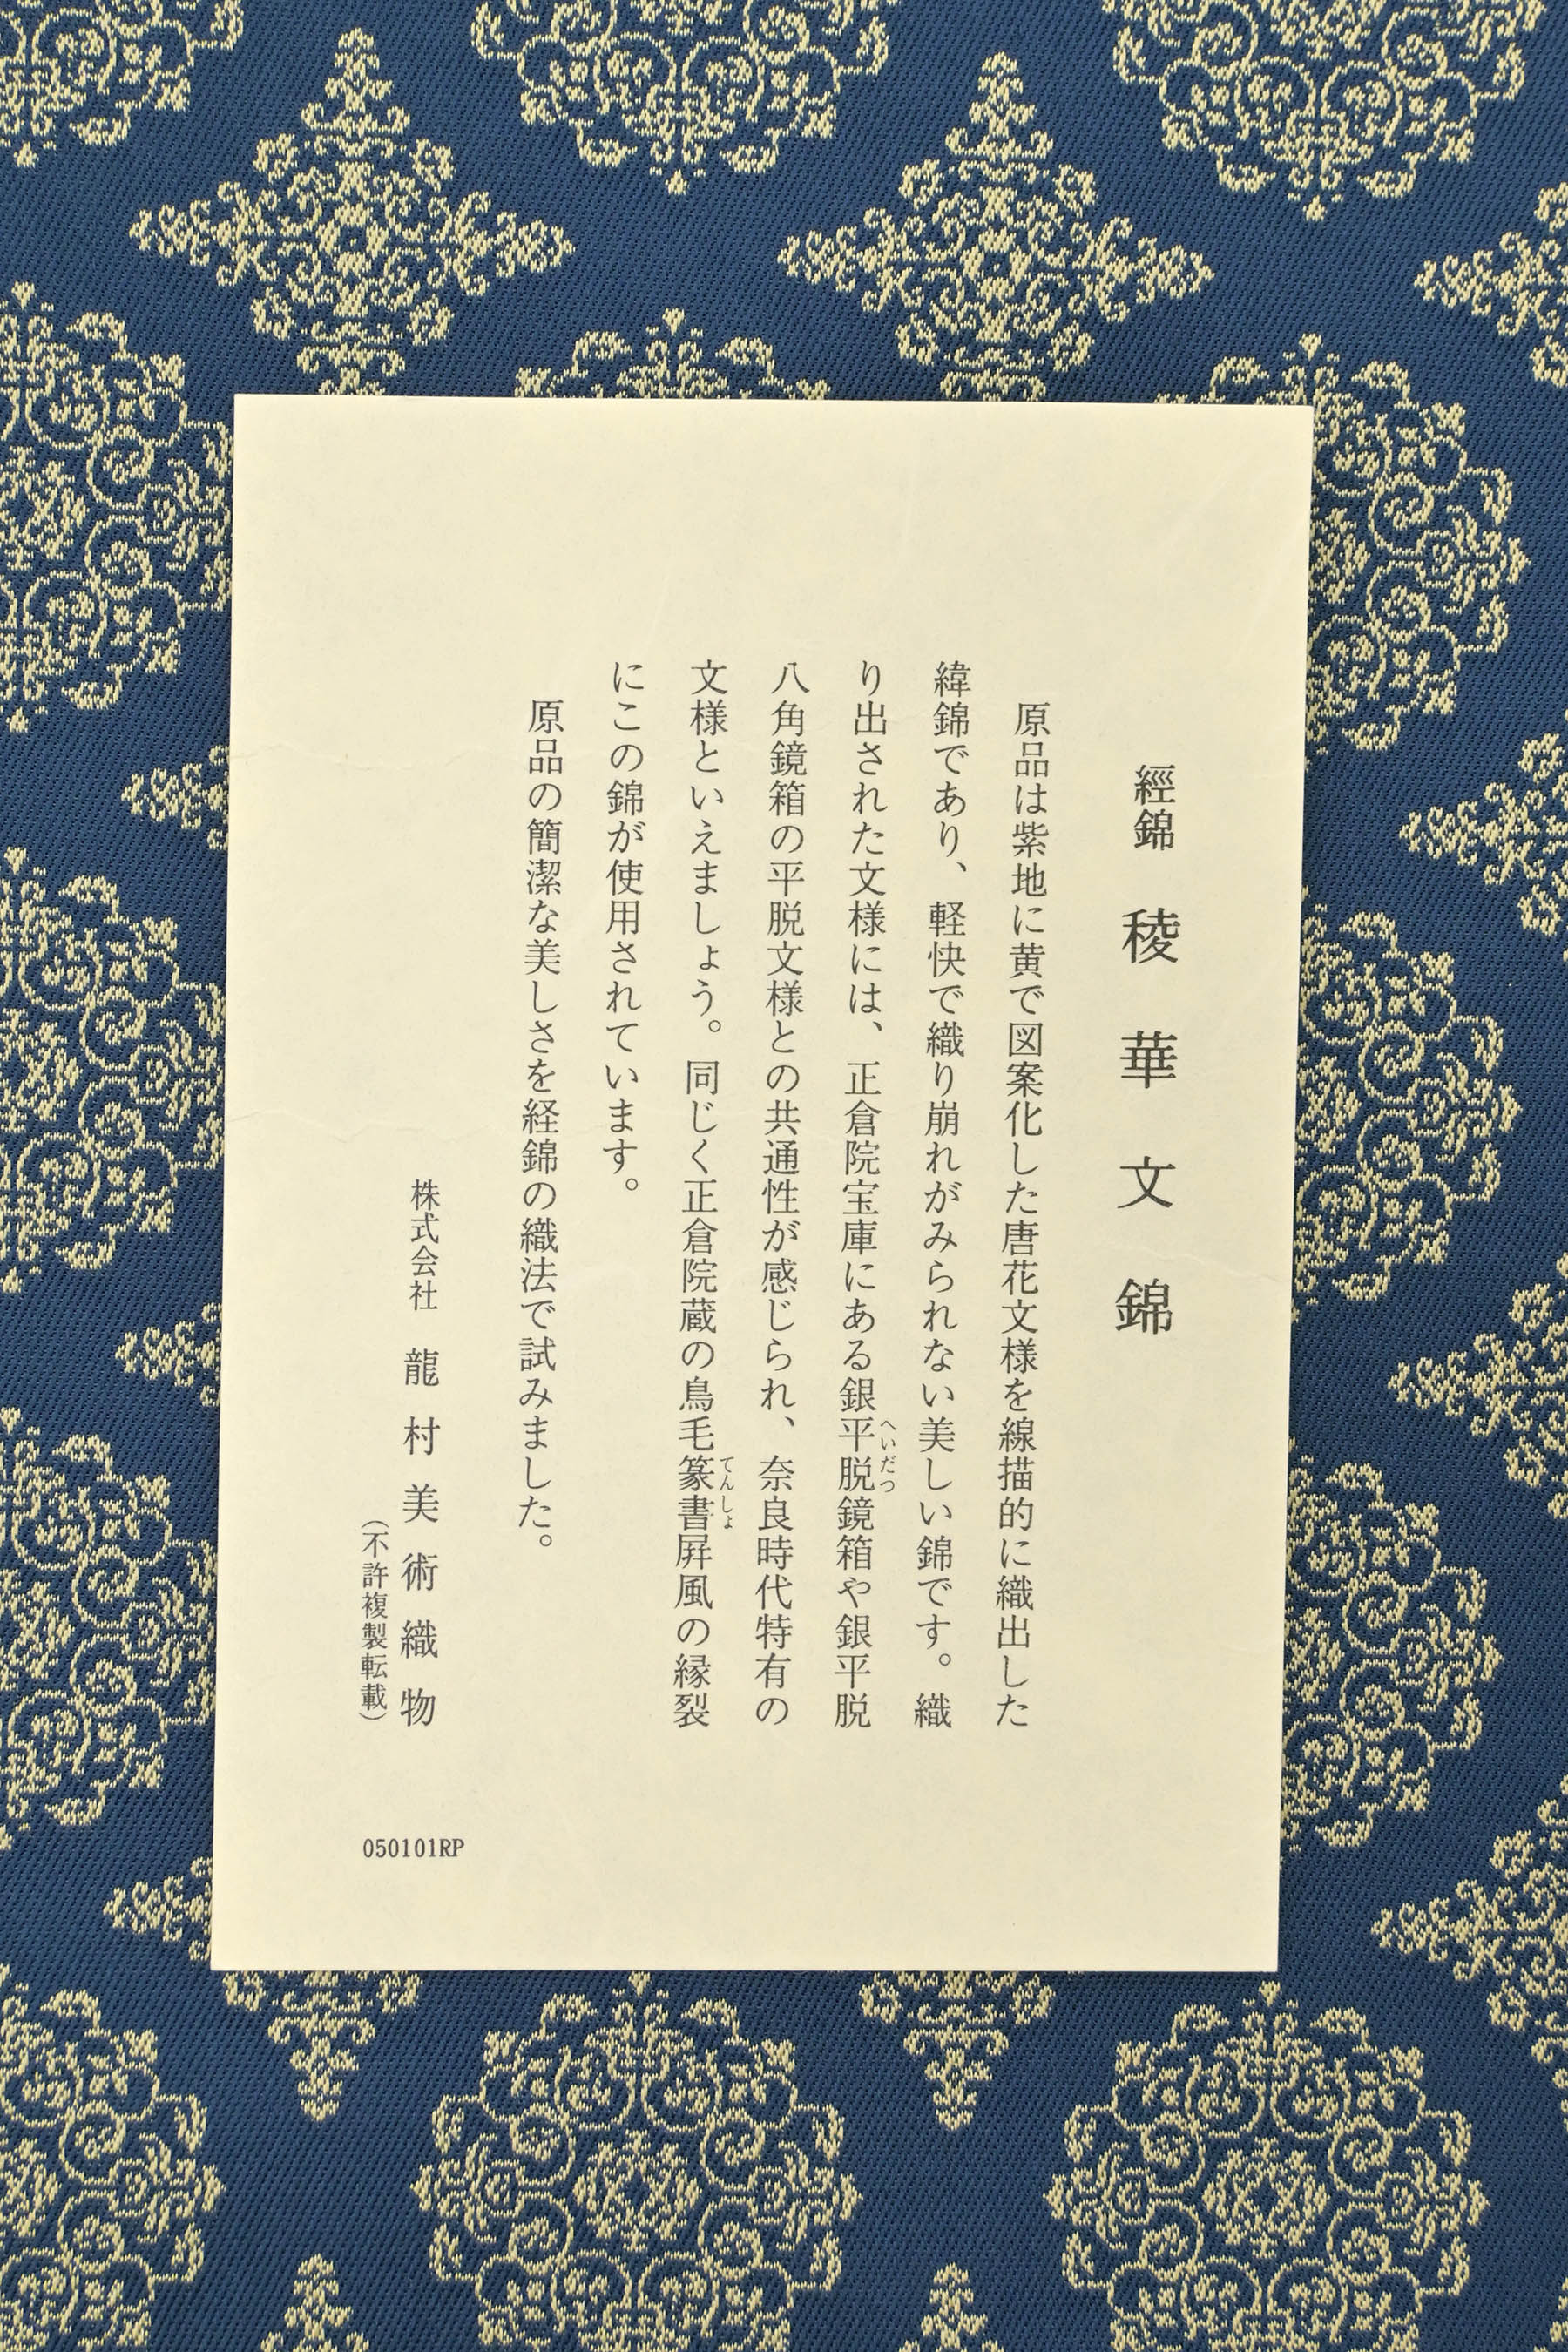 經錦　稜華文錦
原品は紫地に黄で図案化した唐花文様を線描的に織出した
緯錦であり、軽快で織り崩れがみられない美しい錦です。織
り出された文様には、正倉院宝庫にある銀平脱鏡箱や銀平脱
へいだつ
八角鏡箱の平脱文様との共通性が感じられ、奈良時代特有の
文様といえましょう。同じく正倉院蔵の鳥毛篆書屏風の縁裂
てんしょ
にこの錦が使用されています。
原品の簡潔な美しさを経錦の織法で試みました。
株式会社　龍村美術織物
（不許複製転載）
050101RP